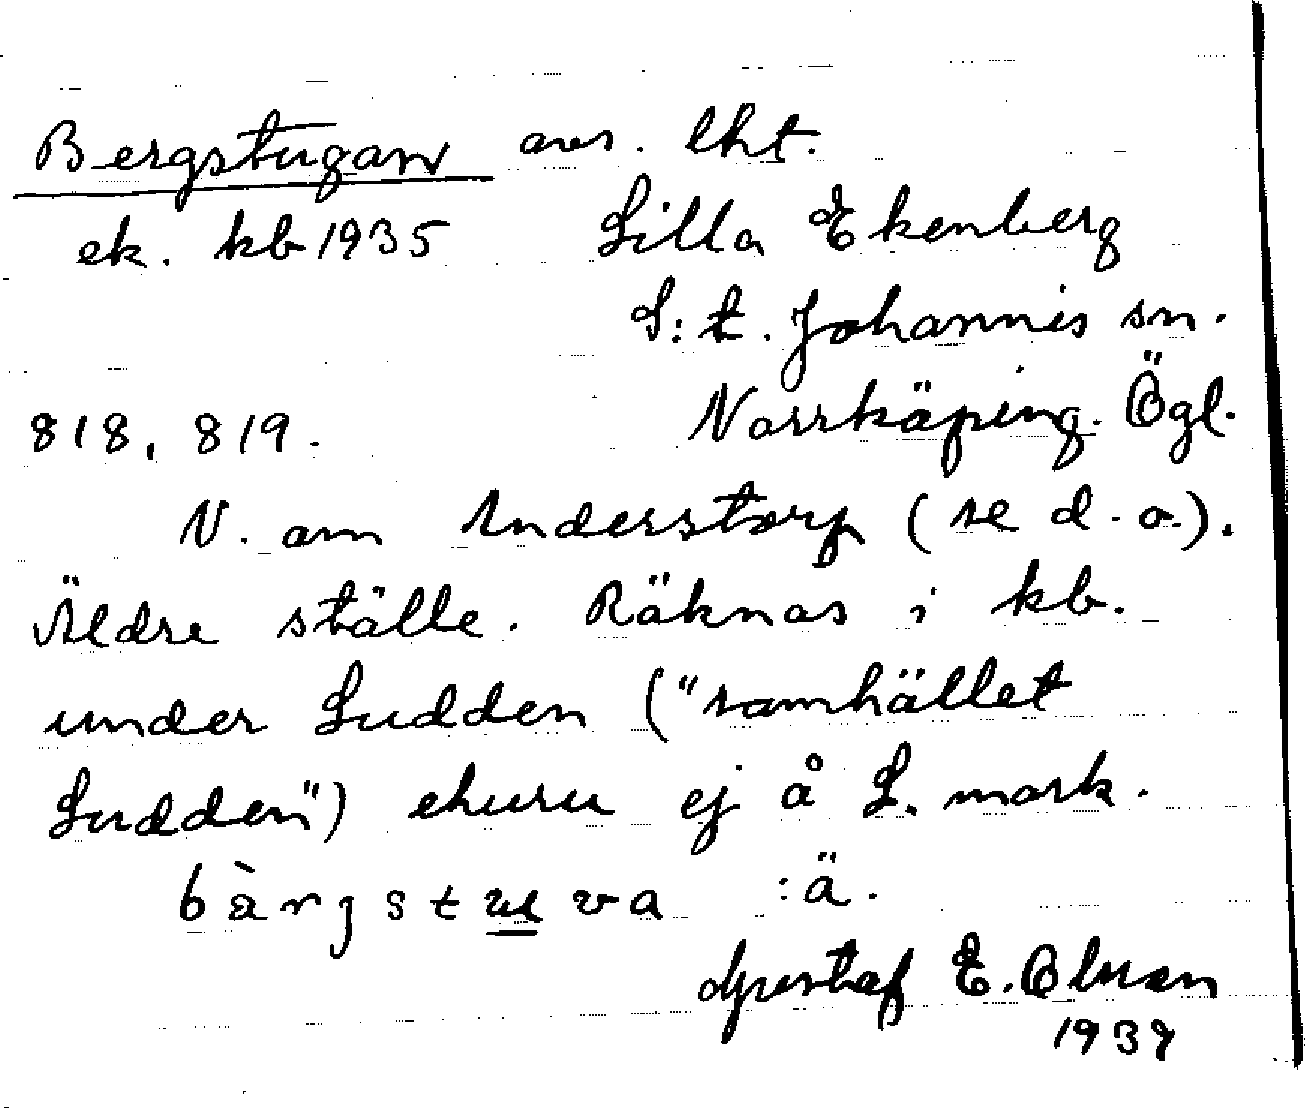 Bergstugan avs. lht.
ek. kb 1935 Lilla Ekenberg
S:t. Johannis sn.
818, 819. Norrköping. Ögl.
V. om Anderstorp (se d. o.).
Äldre ställe. Räknas i kb.
under Sudden ("samhället
Sudden") ehuru ej å S. mark.
bàrgstuva :ä.
Gustaf E. Olsson